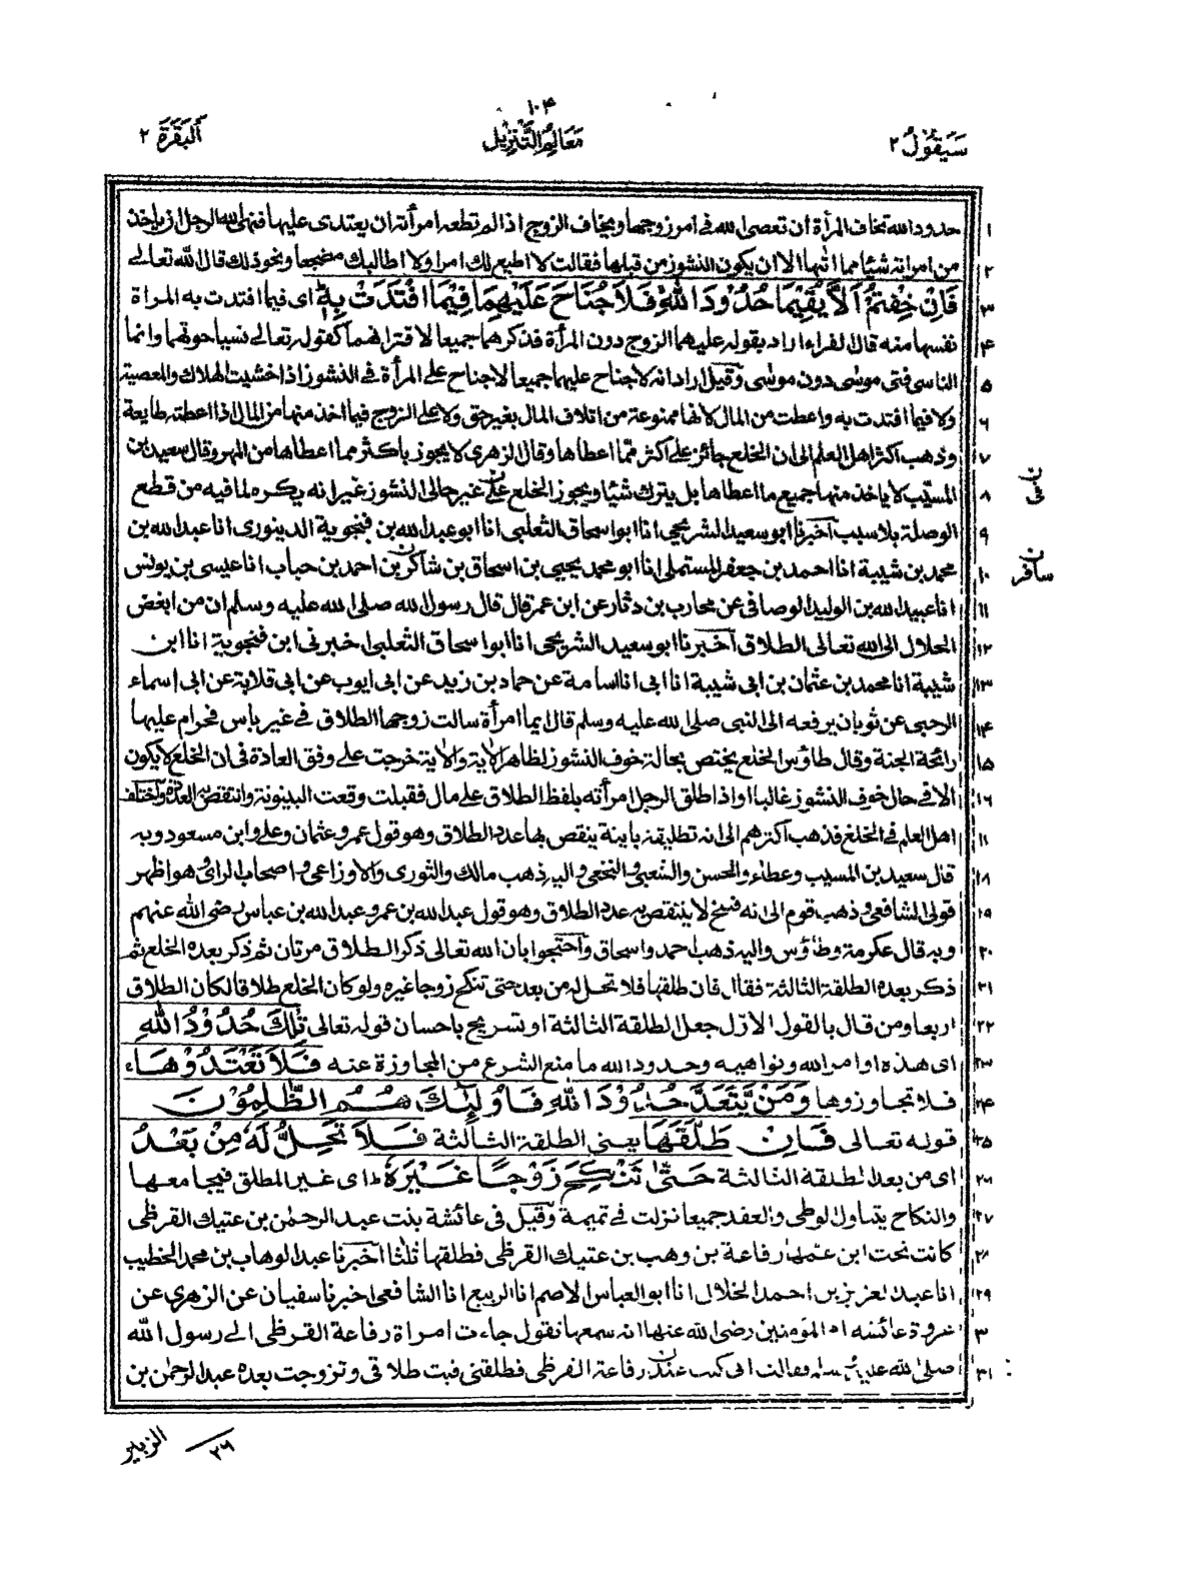 ١٠٤
سَيَقُولُ ٢
مَعَالِمُ التَّنْزِيْل
اَلْبَقَرَة ٢
١ حدود الله تخاف المرأة ان تعصى الله فى امر زوجها ويخاف الزوج اذا لم تطعه امرأته ان يعتدى عليها فنهى الله الرجل ان ياخذ
٢ من امرأته شيئا مما اتٰها الا ان يكون النشوز من قبلها فقالت لا اطيع لك امرا ولا اطالبك مضجعا ونحو ذلك قال الله تعالى
٣ فَاِنْ خِفْتُمْ اَلَّا يُقِيْمَا حُدُوْدَ اللّٰهِ فَلَا جُنَاحَ عَلَيْهِمَا فِيْمَا افْتَدَتْ بِهٖ اى فيما افتدت به المرأة
٤ نفسها منه قال الفراء اراد بقوله عليهما الزوج دون المرأة فذكرهما جميعا لاقترانهما كقوله تعالى نسيا حوتهما وانما
٥ الناسى فتى موسٰى دون موسٰى وقيل اراد انه لا جناح عليهما جميعا لا جناح على المرأة فى النشوز اذا خشيت الهلاك والمعصية
٦ ولا فيما افتدت به واعطت من المال لانها ممنوعة من اتلاف المال بغير حق ولا على الزوج فيما اخذ منها من المال اذا اعطته طايعة
٧ وذهب اكثر اهل العلم الى ان الخلع جائز على اكثر ممّا اعطاها وقال الزهرى لا يجوز باكثر مما اعطاها من المهر وقال سعيد بن
٨ المسيّب لا ياخذ منها جميع ما اعطاها بل يترك شيئا ويجوز الخلع على غير حال النشوز غير انه يكره لما فيه من قطع
٩ الوصلة بلا سبب اخبرنا ابو سعيد الشريحى انا ابو اسحاق الثعلبى انا ابو عبد الله بن فنجوية الدينورى انا عبد الله بن
١٠ محمد بن شيبة انا احمد بن جعفر المستملى انا ابو محمد يحيى بن اسحاق بن شاكر بن احمد بن حباب انا عيسى بن يونس
١١ انا عبيد الله بن الوليد الوصافى عن محارب بن دثار عن ابن عمر قال قال رسول الله صلى الله عليه وسلم ان من ابغض
١٢ الحلال الى الله تعالى الطلاق اخبرنا ابو سعيد الشريحى انا ابو اسحاق الثعلبى اخبرنى ابن فنجوية انا ابن
١٣ شيبة انا محمد بن عثمان بن ابى شيبة انا ابى انا اسامة عن حماد بن زيد عن ابى ايوب عن ابى قلابة عن ابى اسماء
١٤ الرحبى عن ثوبان يرفعه الى النبى صلى الله عليه وسلم قال ايما امرأة سالت زوجها الطلاق فى غير باس فحرام عليها
١٥ رائحة الجنة وقال طاؤس الخلع يختص بحالة خوف النشوز لظاهر الاية والاية خرجت على وفق العادة فى ان الخلع لا يكون
١٦ الا فى حال خوف النشوز غالبا واذا طلق الرجل امرأته بلفظ الطلاق على مال فقبلت وقعت البينونة وانتقص به العدد واختلف
١٧ اهل العلم فى الخلع فذهب اكثرهم الى انه تطليقة باينة ينقص بها عدد الطلاق وهو قول عمر وعثمان وعلى وابن مسعود وبه
١٨ قال سعيد بن المسيب وعطاء والحسن والشعبى والنخعى واليه ذهب مالك والثورى والاوزاعى واصحاب الراى وهو اظهر
١٩ قولى الشافعى وذهب قوم الى انه فسخ لا ينتقص به عدد الطلاق وهو قول عبد الله بن عمر وعبد الله بن عباس رضى الله عنهم
٢٠ وبه قال عكرمة وطاؤس واليه ذهب احمد واسحاق واحتجوا بان الله تعالى ذكر الطلاق مرتان ثم ذكر بعده الخلع ثم
٢١ ذكر بعده الطلقة الثالثة فقال فان طلقها فلا تحل له من بعد حتى تنكح زوجا غيره ولو كان الخلع طلاقا لكان الطلاق
٢٢ اربعا ومن قال بالقول الاول جعل الطلقة الثالثة او تسريح باحسان قوله تعالى تِلْكَ حُدُوْدُ اللّٰهِ
٢٣ اى هذه اوامر الله ونواهيه وحدود الله ما منع الشرع من المجاوزة عنه فَلَا تَعْتَدُوْهَا
٢٤ فلا تجاوزوها وَمَنْ يَّتَعَدَّ حُدُوْدَ اللّٰهِ فَاُولٰٓئِكَ هُمُ الظّٰلِمُوْنَ
٢٥ قوله تعالى فَاِنْ طَلَّقَهَا يعنى الطلقة الثالثة فَلَا تَحِلُّ لَهٗ مِنْ بَعْدُ
٢٦ اى من بعد الطلقة الثالثة حَتّٰى تَنْكِحَ زَوْجًا غَيْرَهٗ اى غير المطلق فيجامعها
٢٧ والنكاح يتناول الوطى والعقد جميعا نزلت فى تميمة وقيل فى عائشة بنت عبد الرحمٰن بن عتيك القرظى
٢٨ كانت تحت ابن عمها رفاعة بن وهب بن عتيك القرظى فطلقها ثلثا اخبرنا عبد الوهاب بن محمد الخطيب
٢٩ انا عبد العزيز بن احمد الخلال انا ابو العباس الاصم انا الربيع انا الشافعى اخبرنا سفيان عن الزهرى عن
٣٠ عروة عن عائشة ام المؤمنين رضى الله عنها انه سمعها تقول جاءت امرأة رفاعة القرظى الى رسول الله
٣١ صلى الله عليه وسلم فقالت انى كنت عند رفاعة القرظى فطلقنى فبت طلاقى وتزوجت بعده عبد الرحمٰن بن
ن فى
ن سافر
٢٦
الزبير